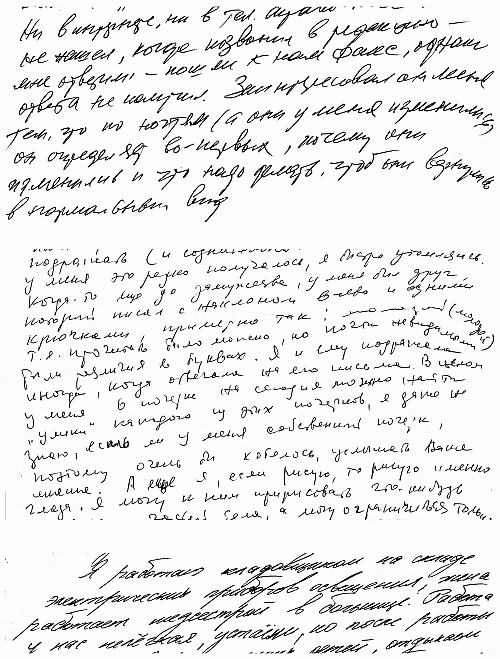 Ни в интернете, ни в тел. справочнике
не нашел, когда позвонил в редакцию –
мне ответили – пошли к нам факс, однако
ответа не получил. Заинтересовал он меня
тем, что по ногтям (а они у меня изменились)
он определял во-первых, почему они
изменились и что надо делать, чтобы они вернулись
в нормальный вид
подражать (и сознательно
у меня это редко получалось, я быстро утомлялась.
Когда-то еще до замужества, у меня был друг
который писал с наклоном влево и одними
крючками, примерно так:
т.е. прочитать было можно, но почти невидимыми
были различия в буквах. Я и ему подражала
иногда, когда отвечала на его письма. В целом
у меня в почерке на сегодня можно найти
"улики" каждого из этих почерков, я даже не
знаю, есть ли у меня собственный почерк,
поэтому очень бы хотелось, услышать Ваше
мнение. А еще я, если рисую, то рисую именно
глаза. Я могу к ним пририсовать что-нибудь
частей тела, а могу ограничиться только
Я работаю кладовщиком на складе
электрических приборов освещения, жена
работает медсестрой в больнице. Работа
у нас нелёгкая, устаём, но после работы
детей, отдыхаем